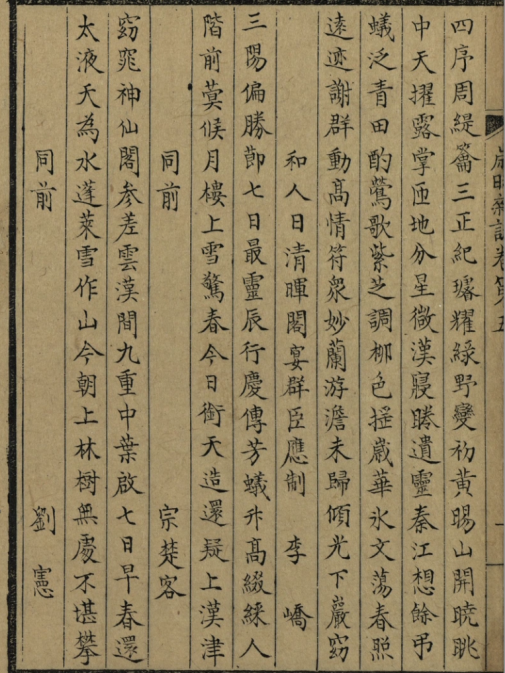 歲時雜詠卷第五
四序周緹籥三正紀璿耀綠野變初黃暘山開曉眺
中天擢露掌匝地分星徼漢寢睠遺靈秦江想餘弔
蟻泛青田酌鶯歌紫芝調柳色搖歲華氷文蕩春照
遠迹謝群動高情符衆妙蘭游澹未歸傾光下巖窈
和人日清暉閣宴群臣應制 李嶠
三陽偏勝節七日最靈辰行慶傳芳蟻升高綴綵人
階前蓂候月樓上雪驚春今日銜天造還疑上漢津
同前 宗楚客
窈窕神仙閣參差雲漢間九重中葉啟七日早春還
太液天為水蓬萊雪作山今朝上林樹無處不堪攀
同前 劉憲